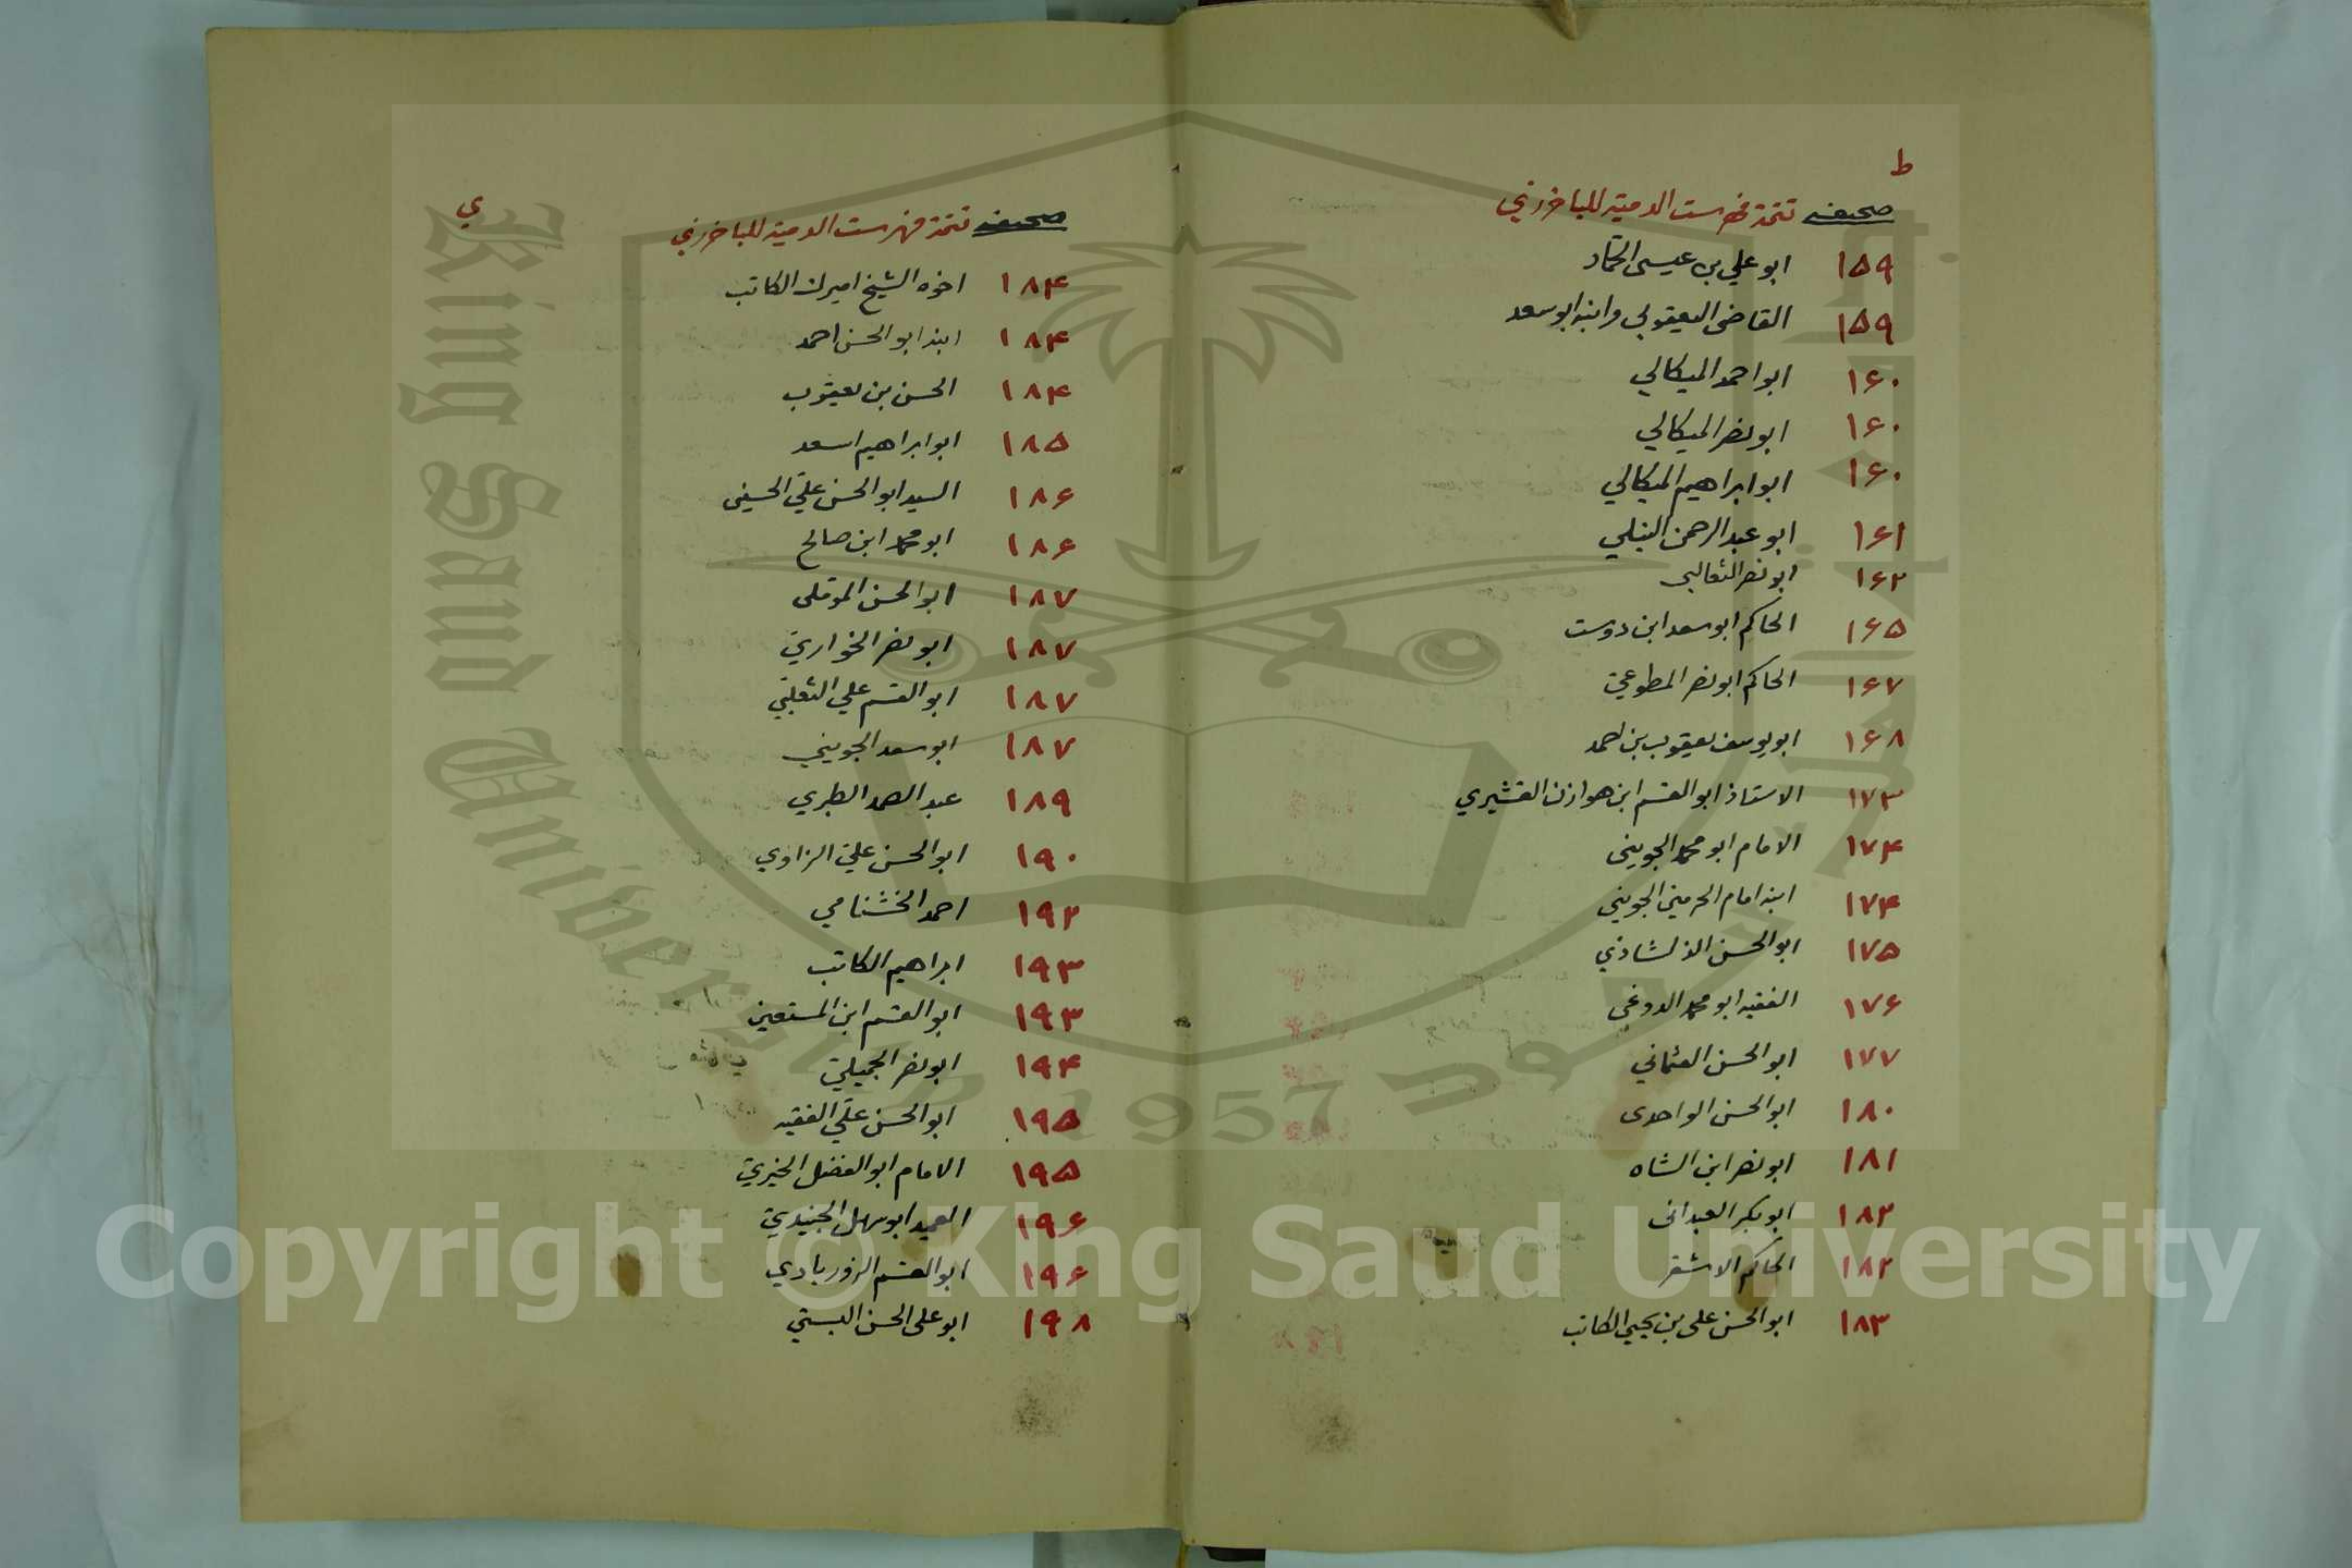 ط
صحيفه تتمة فهرست الدمية للباخرزي
١٥٩ ابو علي بن عيسى الحماد
١٥٩ القاضى اليعقوبي وابنه ابو سعد
١۶٠ ابو احمد الميكالي
١۶٠ ابو نصر الميكالي
١۶٠ ابو ابراهيم الميكالي
١۶١ ابو عبد الرحمن النيلي
١۶٢ ابو نصر الثعالبي
١۶٥ الحاكم ابو سعد ابن دوست
١۶٧ الحاكم ابو نصر المطوعي
١۶٨ ابو يوسف يعقوب بن احمد
١٧٣ الاستاذ ابو القسم ابن هوازن القشيري
١٧۴ الامام ابو محمد الجويني
١٧۴ ابنه امام الحرمين الجويني
١٧٥ ابو الحسن الدلشاذي
١٧۶ الفقيه ابو محمد الدوغي
١٧٧ ابو الحسن العثماني
١٨٠ ابو الحسن الواحدى
١٨١ ابو نصر ابن الشاه
١٨٢ ابو بكر العبدانى
١٨٢ الحاكم الاشقر
١٨٣ ابو الحسن على بن يحيي الكاتب
ي
صحيفه تتمة فهرست الدمية للباخرزي
١٨۴ اخوه الشيخ اميرك الكاتب
١٨۴ ابنه ابو الحسن احمد
١٨۴ الحسن بن يعقوب
١٨٥ ابو ابراهيم اسعد
١٨۶ السيد ابو الحسن علي الحسينى
١٨۶ ابو محمد ابن صالح
١٨٧ ابو الحسن
١٨٧ ابو نصر الخواري
١٨٧ ابو القسم علي الثعلبي
١٨٧ ابو سعد الجويني
١٨٩ عبد الصمد الطبري
١٩٠ ابو الحسن علي الزاوي
١٩٢ احمد الخشنامي
١٩٣ ابراهيم الكاتب
١٩٣ ابو القسم ابن المستعين
١٩۴ ابو نصر الجميلي
١٩٥ ابو الحسن علي الفقيه
١٩٥ الامام ابو الفضل الخيري
١٩۶ العميد ابو سهل الجنيدي
١٩۶ ابو القسم الزوربادي
١٩٨ ابو على الحسن البستي
King Saud University
1957
Copyright © King Saud University